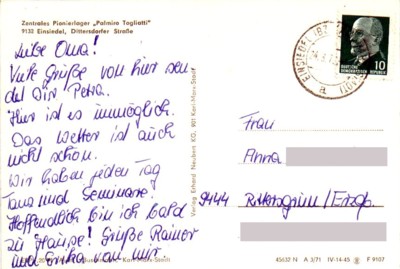 Zentrales Pionierlager „Palmiro Togliatti"
9132 Einsiedel, Dittersdorfer Straße
Liebe Oma!
Viele Grüße von hier sen-
det Dir Petra.
Hier ist es unmöglich.
Das Wetter ist auch
nicht schön.
Wir haben jeden Tag
und Seminare.
Hoffendlich bin ich bald
zu Hause! Grüße Rainer
und Erika von mir.
Verlag Erhard Neubert KG, 901 Karl-Marx-Stadt
EINSIEDEL
DEUTSCHE
DEMOKRATISCHE REPUBLIK
10
Frau
Anna
9444 Rittersgrün/Erzgb.
45637 N A 3/71 IV-14-45 F 9107